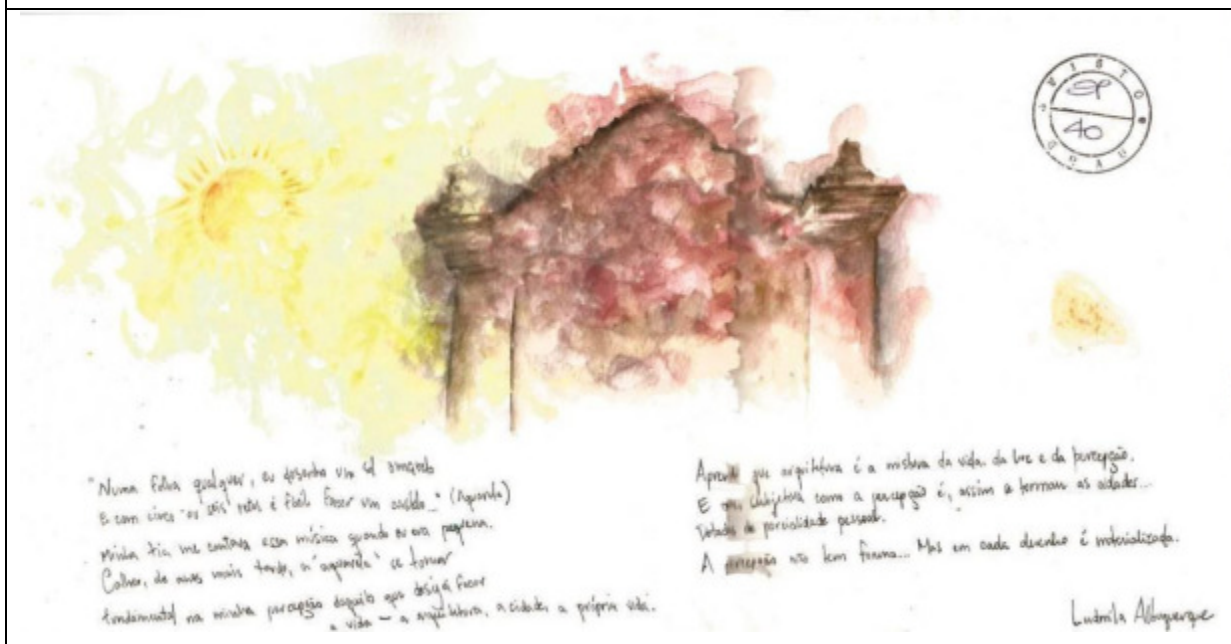 VISTO
40
GRAU
"Numa folha qualquer, eu desenho um sol amarelo
E com cinco ou seis retas é fácil fazer um castelo..." (Aquarela)
Minha tia me cantava essa música quando eu era pequena.
Calhou, de anos mais tarde, a "aquarela" se tornar
fundamental na minha percepção daquilo que desejei fazer
a vida – a arquitetura, a cidade, a própria vida.
Aprendi que arquitetura é a mistura da vida, da luz e da percepção.
E subjetiva como a percepção é, assim se tornam as cidades...
de parcialidade pessoal.
A percepção não tem forma... Mas em cada desenho é materializada.
Ludmila Albuquerque